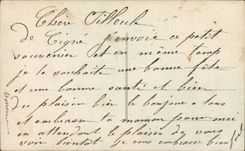 Chère
de Tigré j'envoie ce petit
souvenir et en même temp
je te souhaite une bonne fête
et une bonne santé et bien
du plaisir bien le bonjour a tous
et embrasse ta maman pour moi
en attendant le plaisir de vous
voir bientôt je vous embrasse bien